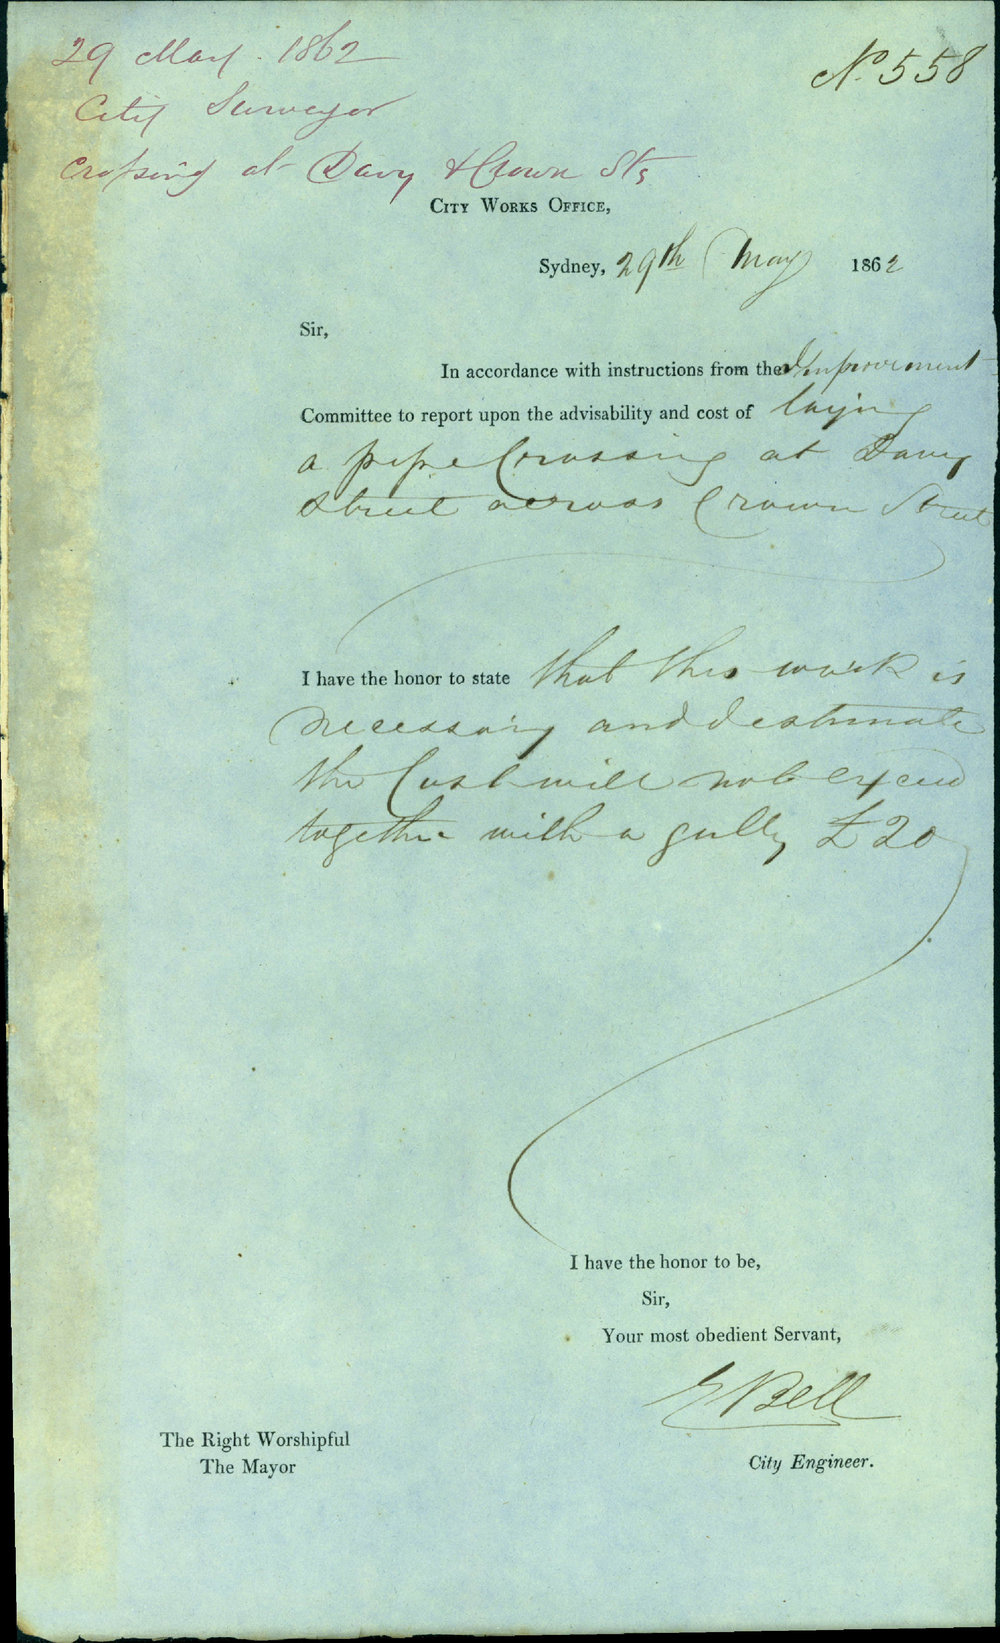 29 May. 1862
No. 558
City Surveyor
Crossing at Davy & Crown Sts
CITY WORKS OFFICE,
Sydney, 29th May 1862
Sir,
In accordance with instructions from the Improvement
Committee to report upon the advisability and cost of laying
a pipe Crossing at Davy
Street across Crown Street
I have the honor to state that this work is
necessary and I estimate
the Cost will not exceed
together with a gully £20
I have the honor to be,
Sir,
Your most obedient Servant,
E Bell
The Right Worshipful
The Mayor
City Engineer.